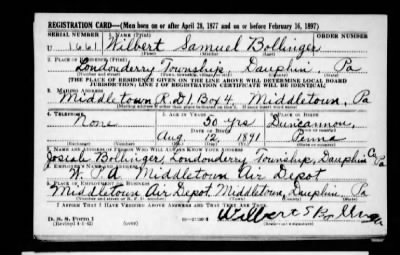 REGISTRATION CARD—(Men born on or after April 28, 1877 and on or before February 16, 1897)
SERIAL NUMBER 1. NAME (Print) ORDER NUMBER
U 1661 Wilbert Samuel Bollinger
2. PLACE OF RESIDENCE (Print)
Londonderry Township, Dauphin, Pa
[THE PLACE OF RESIDENCE GIVEN ON THE LINE ABOVE WILL DETERMINE LOCAL BOARD
JURISDICTION; LINE 2 OF REGISTRATION CERTIFICATE WILL BE IDENTICAL]
3. MAILING ADDRESS
Middletown R.D.1 Box 4, Middletown, Pa
4. TELEPHONE 5. AGE IN YEARS 6. PLACE OF BIRTH
None 50 yrs Duncannon,
DATE OF BIRTH
Aug. 12 1891 Penna
7. NAME AND ADDRESS OF PERSON WHO WILL ALWAYS KNOW YOUR ADDRESS
Josiah Bollinger, Londonderry Township, Dauphin Co Pa
8. EMPLOYER'S NAME AND ADDRESS
W. P. A. Middletown Air Depot
9. PLACE OF EMPLOYMENT OR BUSINESS
Middletown Air Depot, Middletown, Dauphin, Pa
I AFFIRM THAT I HAVE VERIFIED ABOVE ANSWERS AND THAT THEY ARE TRUE.
D. S. S. Form 1
(Revised 4-1-42)
Wilbert S Bollinger